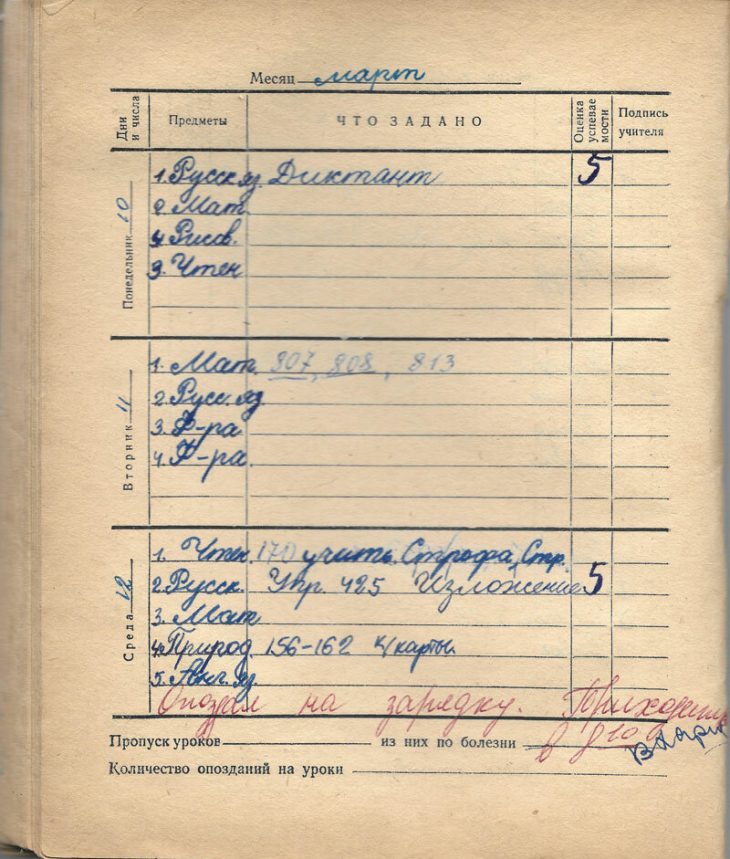 Месяц март
Дни и числа Предметы ЧТО ЗАДАНО Оценка успевае мости Подпись учителя
Понедельник 10
1. Русск яз. Диктант 5
2 Мат
4 Рисов.
3. Чтен
Вторник 11
1. Мат. 807, 808, 813
2. Русс. яз.
3. Ф-ра
4. Ф-ра.
Среда 12
1. Чтен. 170 учить. Строфа, Стр.
2. Русск. Упр. 425 Изложение 5
3. Мат
4. Природ. 156-162 к/карты.
5. Анг. яз.
Опоздал на зарядку. Приходить
в 8 10
Пропуск уроков из них по болезни
Количество опозданий на уроки